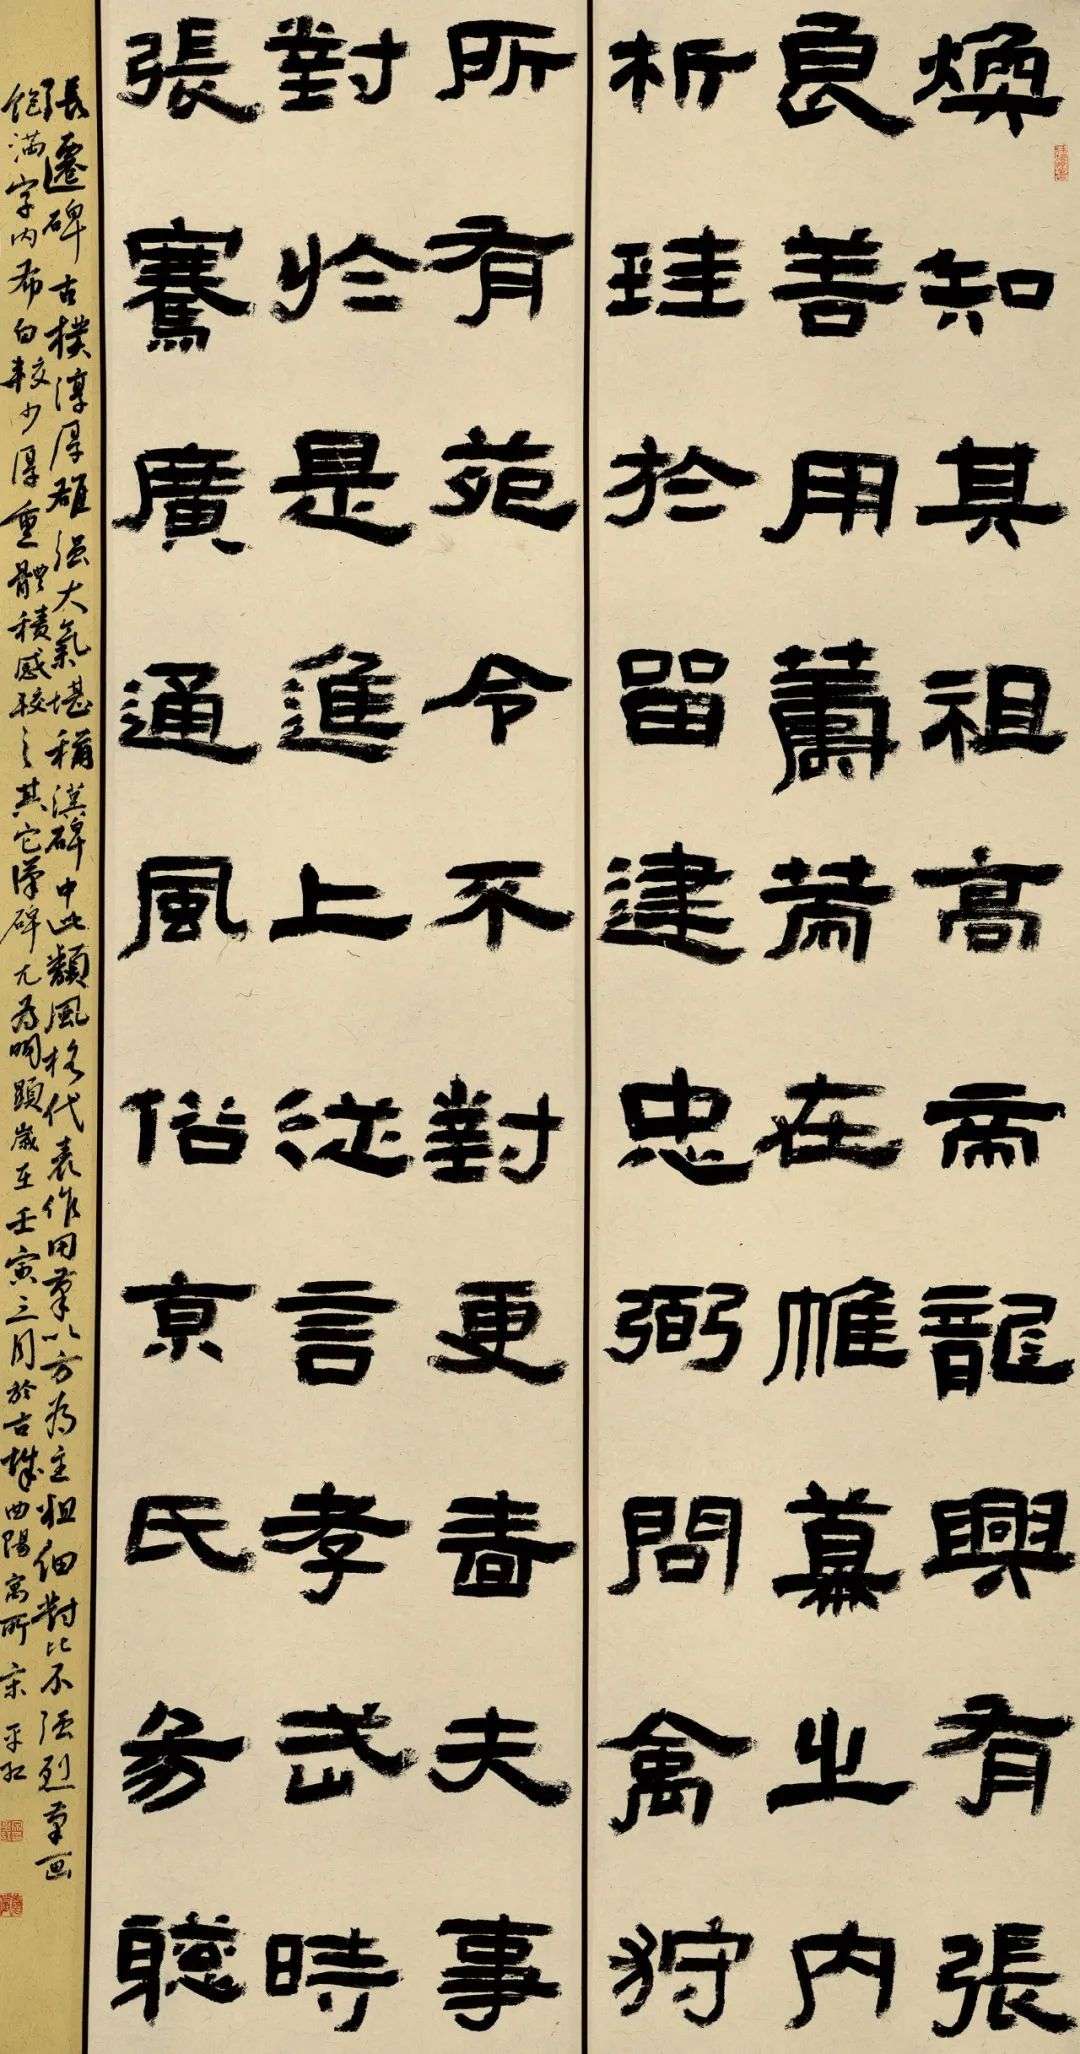 煥知其祖高帝龍興有張
良善用籌策在帷幕之內
析珪於留建忠弼問禽狩
所有苑令不對更嗇夫事
對於是進上從言孝武時
張騫廣通風俗京氏易聰
張遷碑古樸淳厚雄强大氣堪稱漢碑中此類風格代表作用筆以方為主粗细對比不强烈筆画
飽满字内布白較少厚重體積感較之其它漢碑尤為明顯歲在壬寅三月於古城曲陽寓所宋平